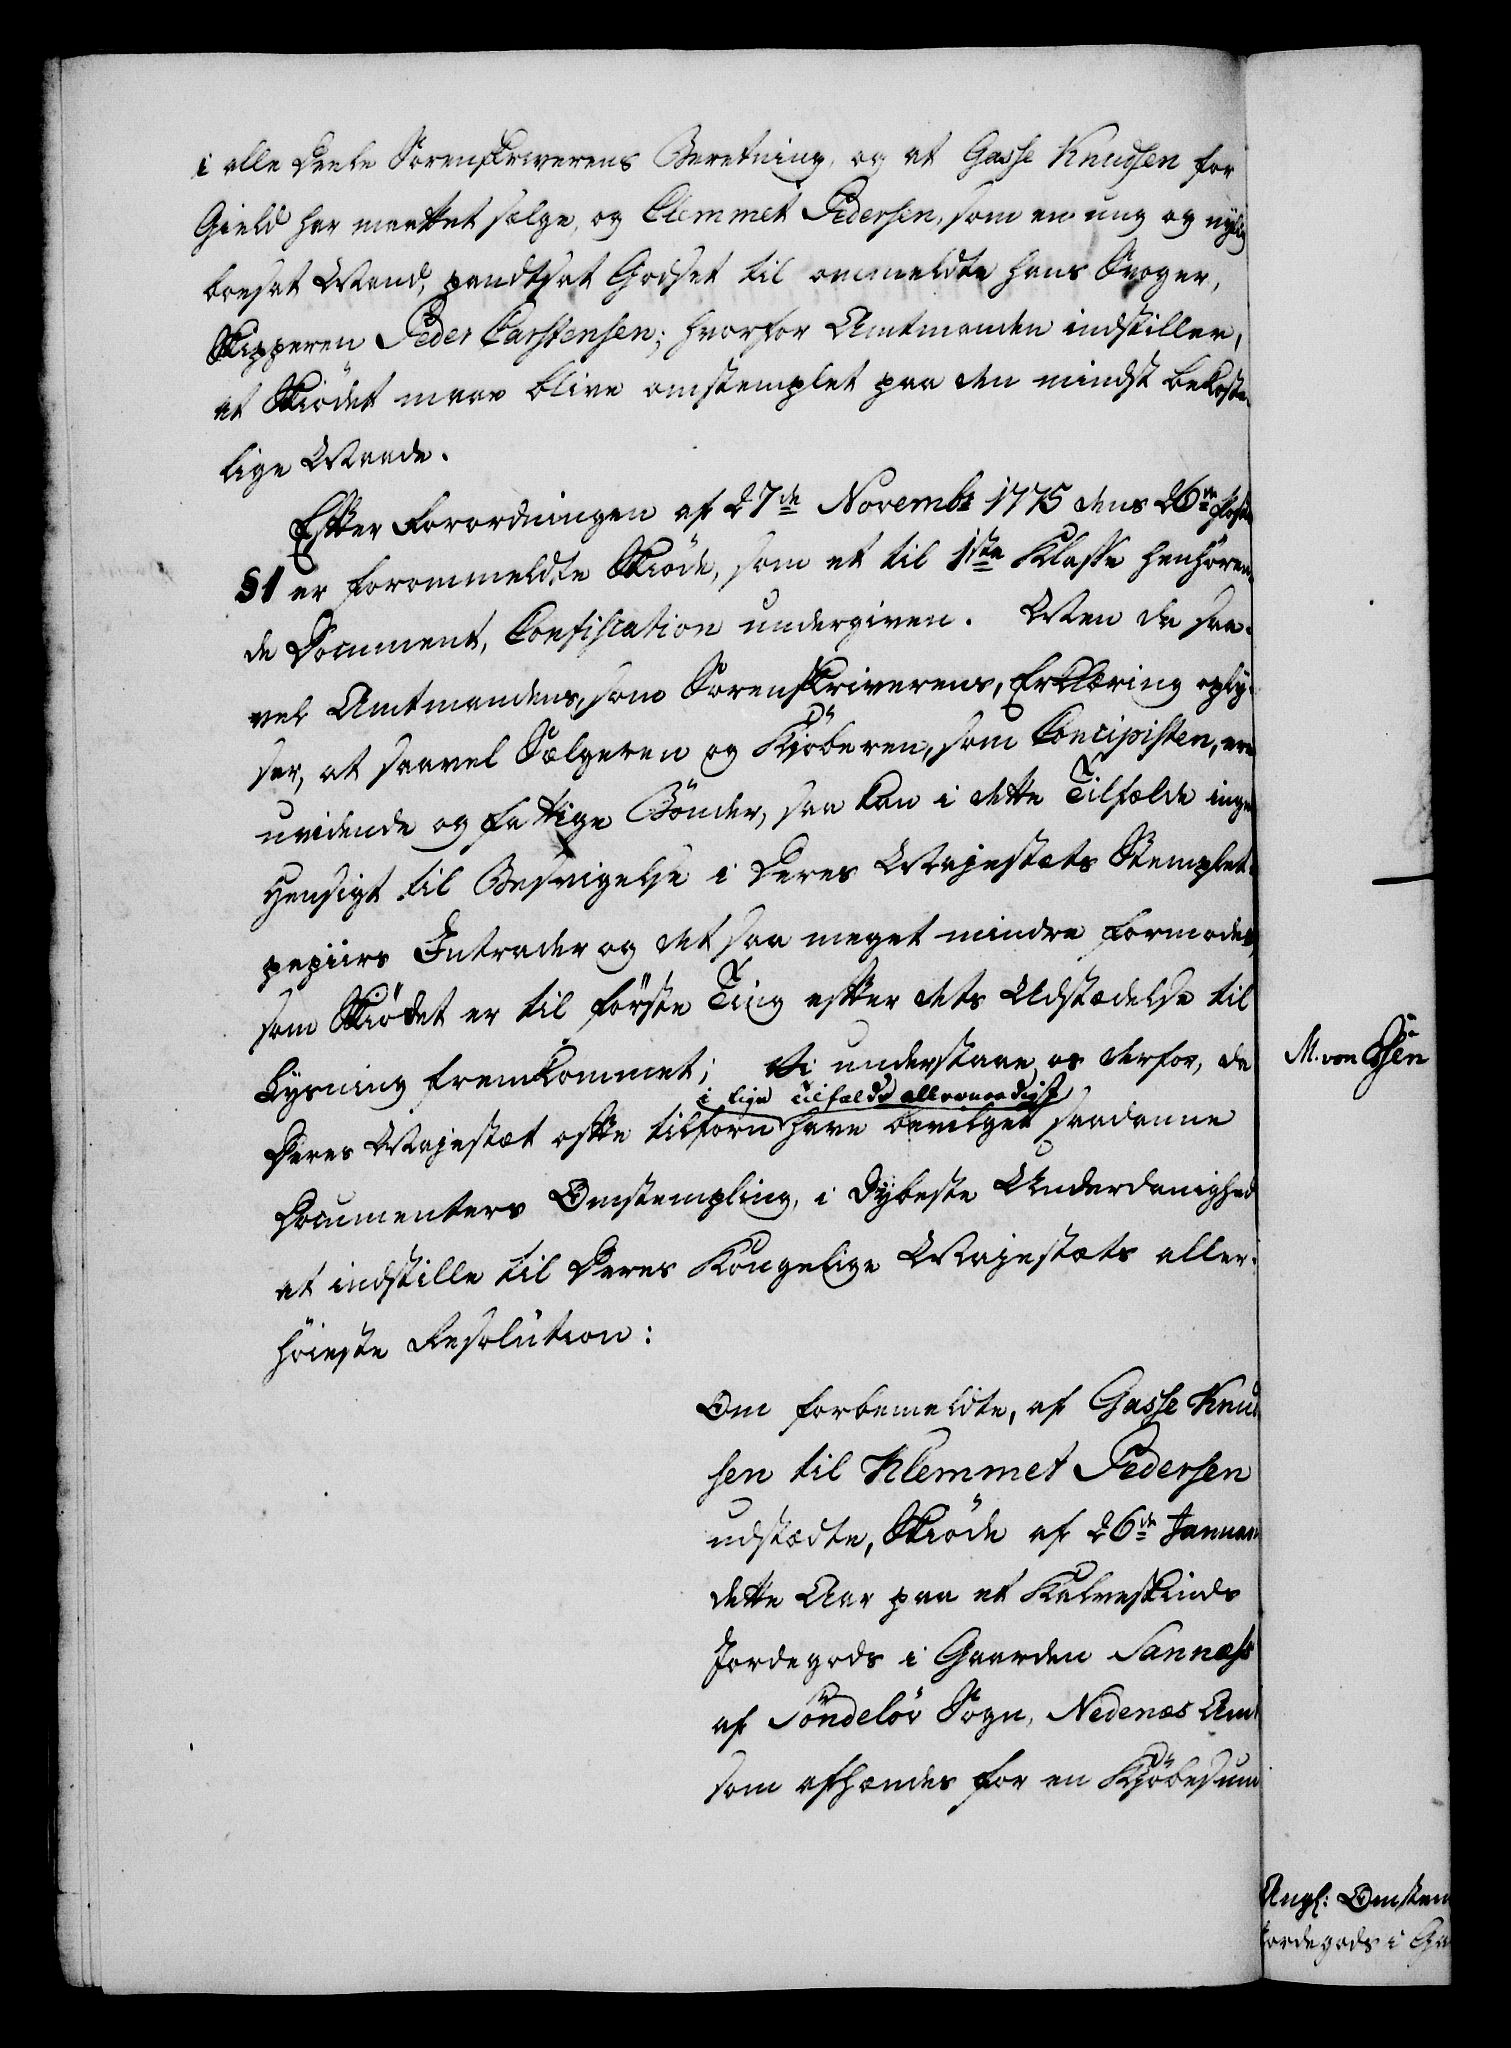 i alle Deele Sorenskriverens Beretning, og at Gasse Knudsen for
Gield har maattet sælge, og Clemmet Pedersen, som en ung og nylig
boesat Mand, pandtsat Godset til ommeldte hans Svoger,
Skipperen Peder Carstensen; hvorfor Amtmanden indstiller,
at Skiödet maae blive omstemplet paa den mindst bekoste-
lige Maade.
Efter Forordningen af 27de Novembr 1775 dens 26de Post
§1 er forommeldte Skiöde, som et til 1ste Klasse henhören-
de Document, Confiscation undergiven. Men da saa-
vel Amtmandens, som Sorenskriverens, Erklæring oply-
ser, at saavel Sælgeren og Kjöberen, som Concipisten, ere
uvidende og fattige Bönder, saa kan i dette Tilfælde ingen
Hensigt til Besvigelse i Deres Majestæts Stemplet-
papiirs Intrader og det saa meget mindre formodes,
som Skiödet er til förste Ting efter dets Udstædelse til
Lysning fremkommet; Vi understaae os derfor, da
i lige Tilfælde allernaadigst
Deres Majestæt ofte tilforn have bevilget saadanne
Documenters Omstempling, i dybeste Underdanighed
at indstille til Deres Kongelige Majestæts aller-
höieste Resolution:
Om forbemeldte, af Gasse Knud
sen til Klemmet Pedersen
udstædte, Skiöde af 26de Januari
dette Aar paa et Kalveskinds
Jordegods i Gaarden Sannæss
af Söndelöv Sogn, Nedenæs Amt
som afhændes for en Kjöbesum
M. von Essen
Angl: Omstem
Jordegods i Ga